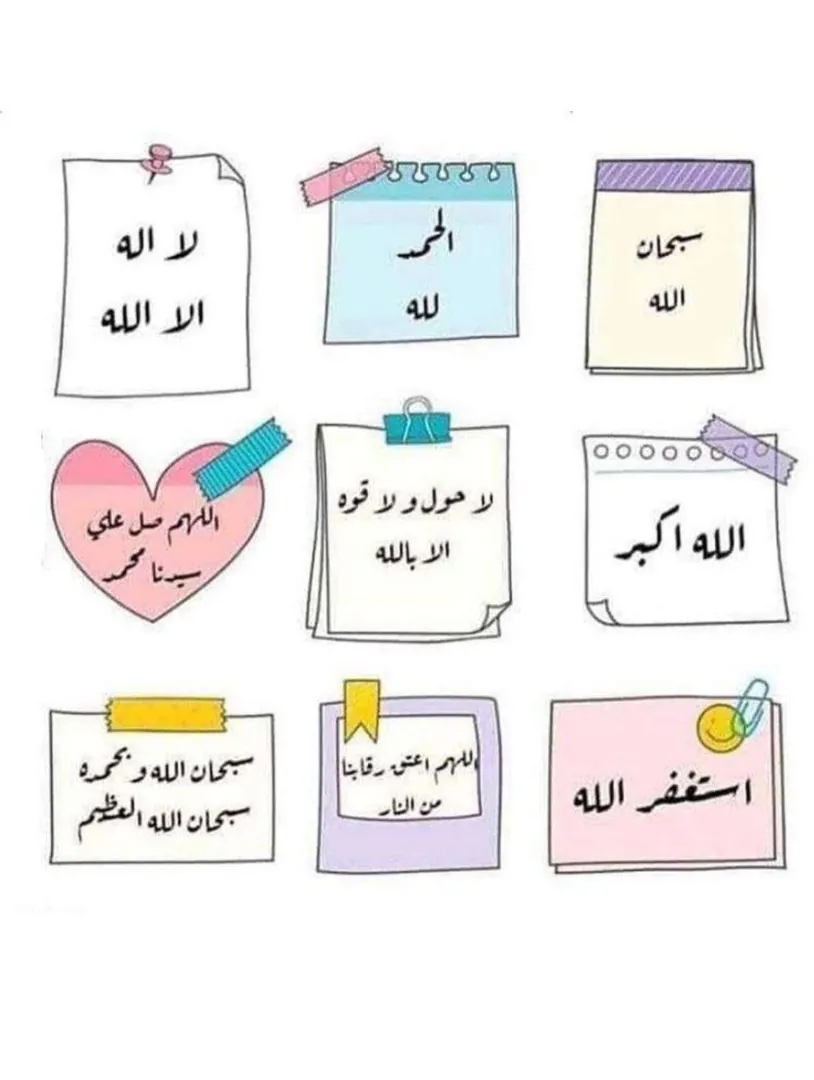 سبحان
الله
الحمد
لله
لا اله
الا الله
الله اكبر
لا حول و لا قوه
الا بالله
اللهم صل علي
سيدنا محمد
استغفر الله
اللهم اعتق رقابنا
من النار
سبحان الله و بحمده
سبحان الله العظيم